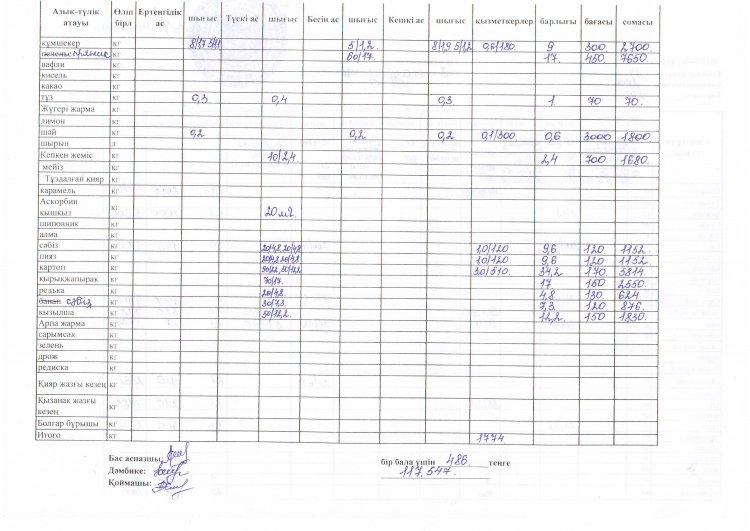 Азық-түлік атауы Өлш бірл Ертеңгілік ас шығыс Түскі ас шығыс Бесін ас шығыс Кешкі ас шығыс қызметкерлер барлығы бағасы сомасы
құмшекер кг 5/1,2 8/19 5/1,2 0,6/180. 9 300 2700
печенье пряник кг 60/17. 17. 450 7650
вафли кг
кисель кг
какао кг
тұз кг 0,3 0,4 0,3 1 70 70.
Жүгері жарма кг
лимон кг
шай кг 0,2 0,2 0,2 0,1/300 0,6 3000 1800
шырын л
Кепкен жеміс кг 10/2,4 2,4 700 1680
мейіз кг
Тұздалған қияр кг
карамель кг
Аскорбин қышқыл кг 20 мг.
шиповник кг
алма кг
сәбіз кг 20/4,8 20/4,8 1,0/120 9,6 120 1152
пияз кг 20/4,8 20/4,8 1,0/120 9,6 120 1152
картоп кг 3,0/510. 34,2 170 5814
қырыққапырақ кг 70/17. 17 150 2550
редька кг 20/4,8 4,8 130 624
банан сәбіз кг 30/7,3 7,3 120 876
қызылша кг 50/12,2. 12,2 150 1830.
Арпа жарма кг
сарымсақ кг
зелень кг
дрож кг
редиска кг
Қияр жазғы кезең кг
Қызанақ жазғы кезең кг
Болгар бұрышы кг
Итого 1774
Бас аспазшы:
Дәмбике:
Қоймашы:
бір бала үшін 486 теңге
117.547.